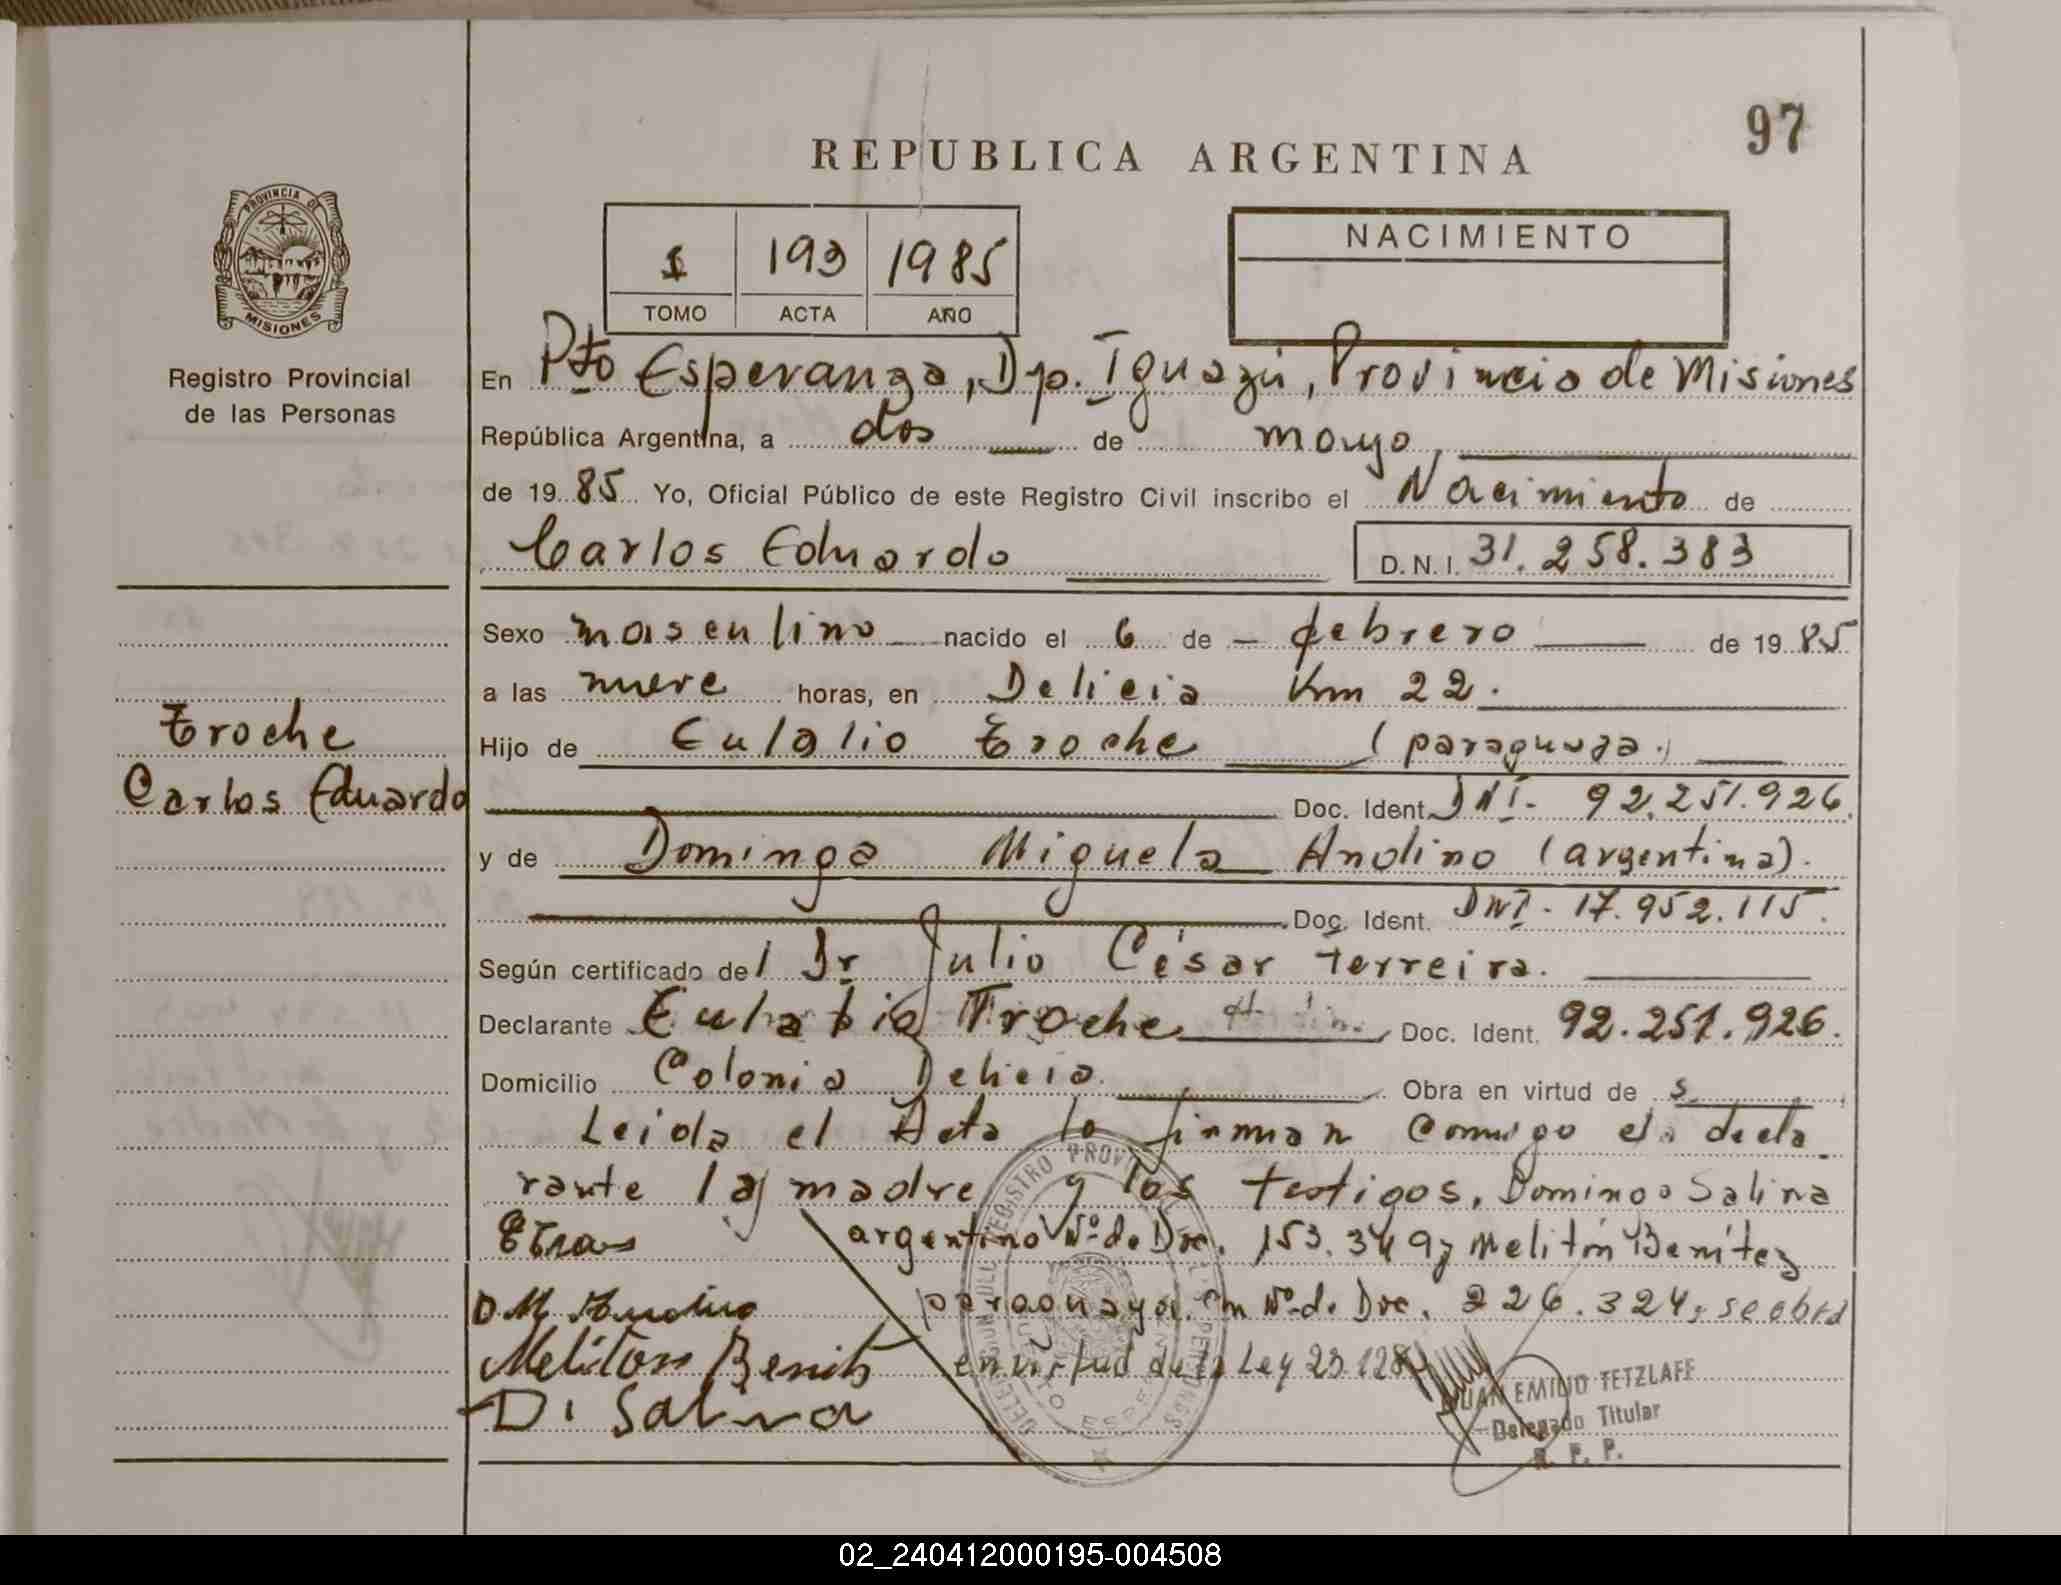 97
REPUBLICA ARGENTINA
PROVINCIA DE
MISIONES
Registro Provincial
de las Personas
1 193 1985
TOMO ACTA AÑO
NACIMIENTO
En Pto Esperanza, Dp. Iguazú, Provincia de Misiones
República Argentina, a dos de mayo
de 1985 Yo, Oficial Público de este Registro Civil inscribo el Nacimiento de
Carlos Eduardo D.N.I. 31.258.383
Sexo masculino nacido el 6 de febrero de 1985
a las nueve horas, en Delicia Km 22.
Troche
Carlos Eduardo
Hijo de Eulalio Troche (paraguaya)
Doc. Ident. DNI. 92.251.926.
y de Dominga Miguela Andino (argentina).
Doc. Ident. DNI. 17.952.115.
Según certificado del Dr Julio César Ferreira.
Declarante Eulalio Troche Doc. Ident. 92.251.926.
Domicilio Colonia Delicia. Obra en virtud de s
Leida el Acta lo firman conmigo el decla
rante la madre y los testigos, Domingo Salina
argentino Nº de Doc. 153.349 y Melitón Benítez
D.M. Andino paraguayo, Nº de Doc. 226.324, se obra
Meliton Benit en virtud de la Ley 23.128
D. Salina
JUAN EMILIO TETZLAFF
Delegado Titular
R. P. P.
02_240412000195-004508